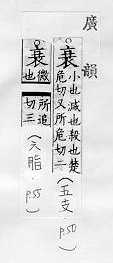 廣韻
衰 小也減也殺也楚
危切又所危切二
(五支)
p.50
衰 微也
所追切三
(六脂)
p.55